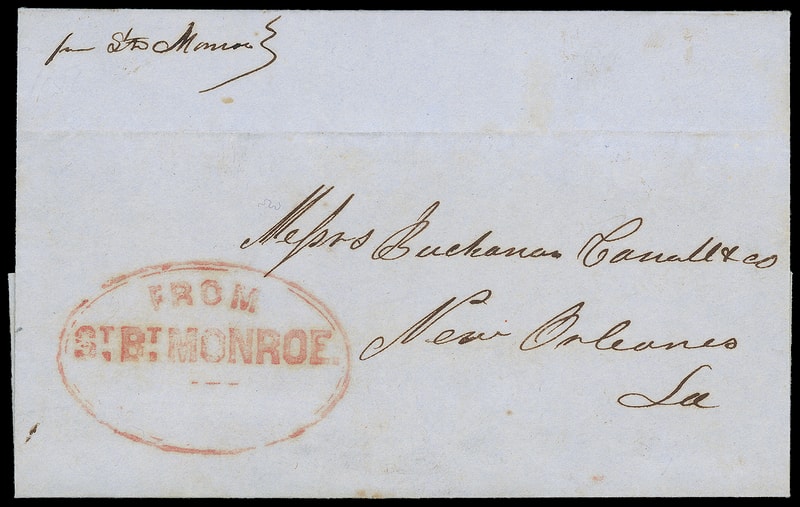 per Str Monroe
Messrs Buchanan Carroll & co
New Orleans
La
FROM
ST. BT. MONROE.